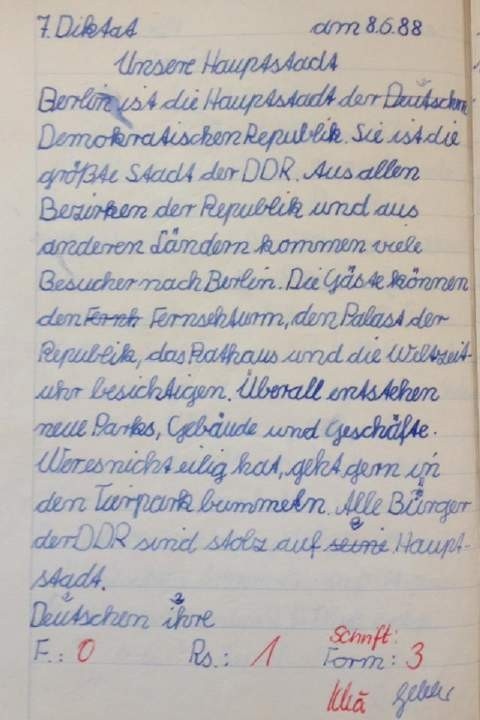 7. Diktat am 8.6.88
Unsere Hauptstadt
Berlin ist die Hauptstadt der Deutschen
Demokratischen Republik. Sie ist die
größte Stadt der DDR. Aus allen
Bezirken der Republik und aus
anderen Ländern kommen viele
Besucher nach Berlin. Die Gäste können
den Fernh Fernsehturm, den Palast der
Republik, das Rathaus und die Weltzeit-
uhr besichtigen. Überall entstehen
neue Parks, Gebäude und Geschäfte.
Wer es nicht eilig hat, geht gern in
den Tierpark bummeln. Alle Bürger
der DDR sind stolz auf seine Haupt-
stadt.
Deutschen ihre
Schrift:
F.: 0 Rs.: 1 Form: 3